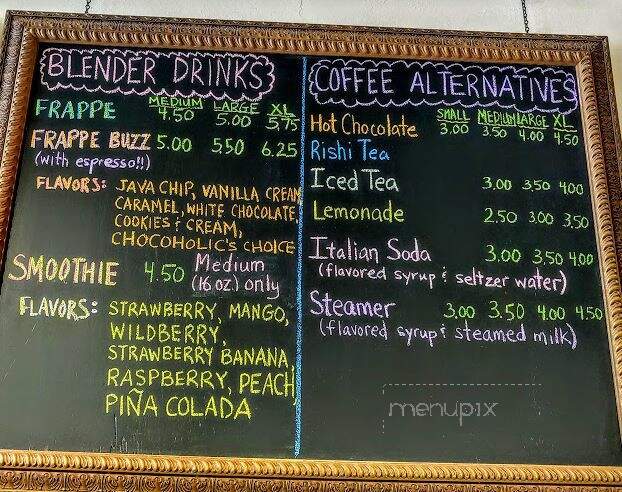 BLENDER DRINKS
MEDIUM LARGE XL
FRAPPE 4.50 5.00 5.75
FRAPPE BUZZ 5.00 5.50 6.25
(with espresso!!)
FLAVORS: JAVA CHIP, VANILLA CREAM
CARAMEL, WHITE CHOCOLATE,
COOKIES & CREAM,
CHOCOHOLIC'S CHOICE
SMOOTHIE 4.50 Medium
(16 oz) only
FLAVORS: STRAWBERRY, MANGO,
WILDBERRY,
STRAWBERRY BANANA,
RASPBERRY, PEACH
PIÑA COLADA
COFFEE ALTERNATIVES
SMALL MEDIUM LARGE XL
Hot Chocolate 3.00 3.50 4.00 4.50
Rishi Tea
Iced Tea 3.00 3.50 4.00
Lemonade 2.50 3.00 3.50
Italian Soda 3.00 3.50 4.00
(flavored syrup & seltzer water)
Steamer 3.00 3.50 4.00 4.50
(flavored syrup & steamed milk)
menupix